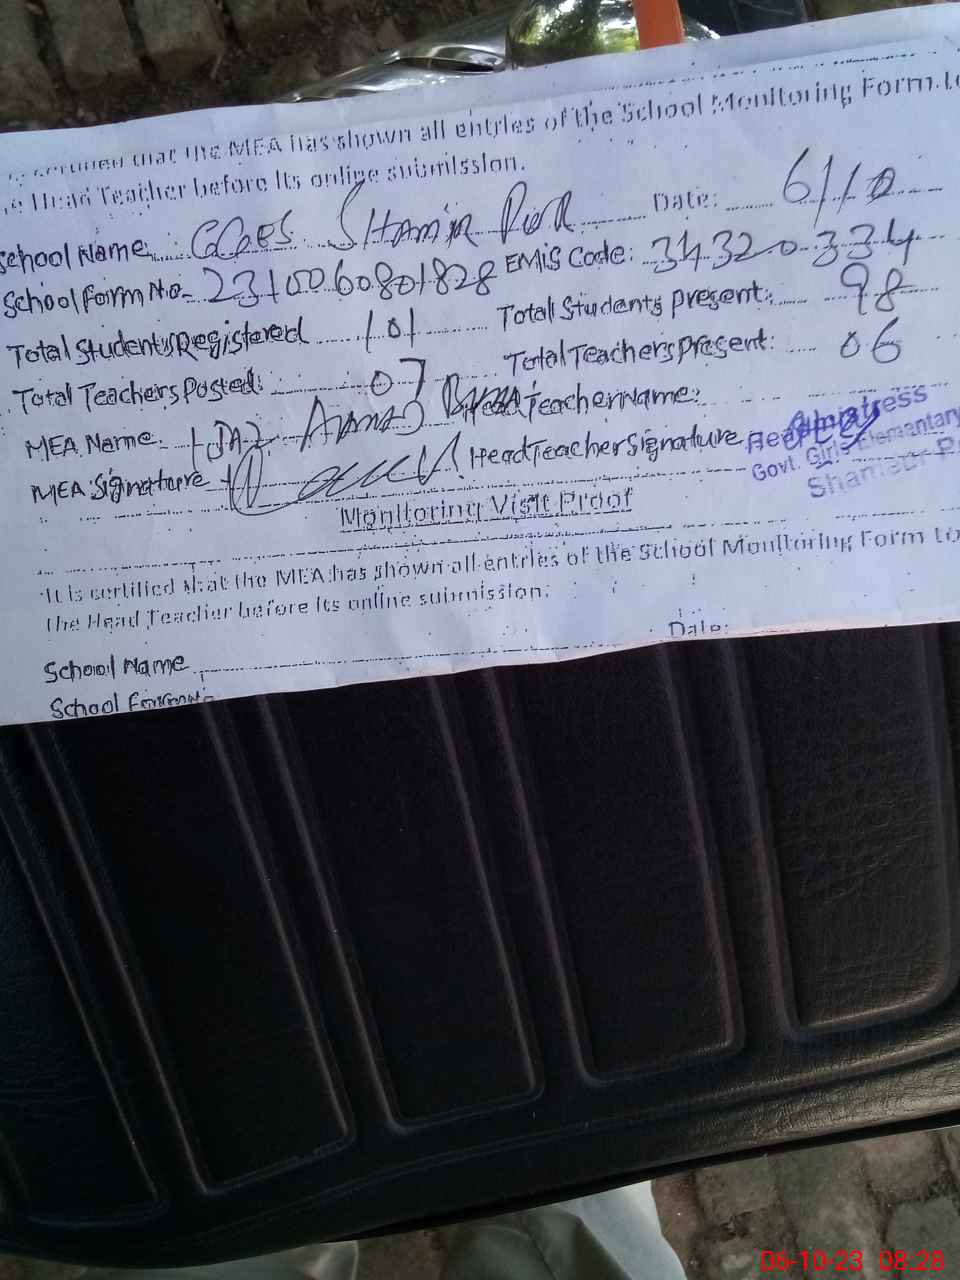 certified that the MEA has shown all entries of the School Monitoring Form to
Head Teacher before its online submission.
School Name: GGES Shamir Pur Date: 6/10
School Form No. 2310060801828 EMIS Code: 34320334
Total Students Registered 101 Total Students present: 98
Total Teachers Posted: 07 Total Teachers present: 06
MEA Name: Head Teacher Name:
MEA Signature Head Teacher Signature
Headmistress
Govt. Girls Elementary
Monitoring Visit Proof
It is certified that the MEA has shown all entries of the School Monitoring Form to
the Head Teacher before its online submission.
School Name Date:
School Form
06-10-23 08:28